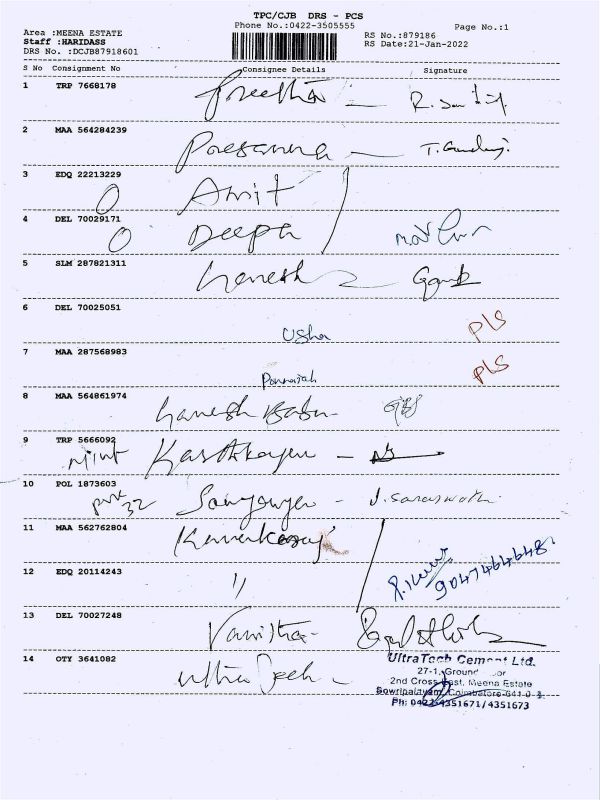 TPC/CJB DRS - PCS
Phone No.:0422-3505555
Page No.:1
Area :MEENA ESTATE
Staff :HARIDASS
DRS No. :DCJB87918601
RS No.:879186
RS Date:21-Jan-2022
S No Consignment No Consignee Details Signature
1 TRP 7668178 Preetha -
2 MAA 564284239 Presanna -
3 EDQ 22213229 Amit
4 DEL 70029171 Deepa
5 SLM 287821311 Ganesh
6 DEL 70025051 Usha PLS
7 MAA 287568983 Ponnaiah PLS
8 MAA 564861974 Ganesh Babu
9 TRP 5666092
10 POL 1873603 - J. Saraswathi
11 MAA 562762804 Kanakaraj
12 EDQ 20114243 "
13 DEL 70027248 Vanitha -
14 OTY 3641082 Ultra Tech -
UltraTech Cement Ltd.
27-1, Ground
2nd Cross East, Meena Estate
Sowripalayam, Coimbatore-641 0
Ph: 0422-4351671/4351673